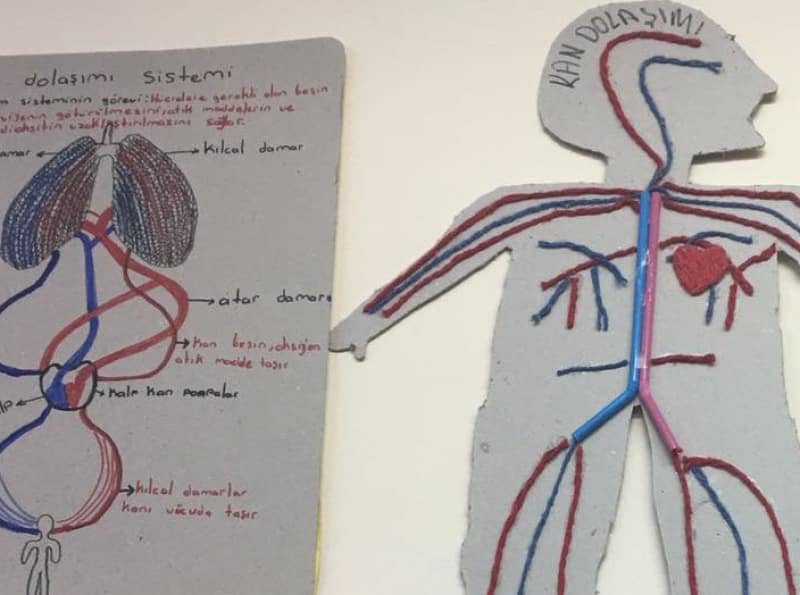 dolaşımı sistemi
sisteminin görevi: Hücrelere gerekli olan besin
götürülmesini, atık maddelerin ve
uzaklaştırılmasını sağlar.
amar
Kılcal damar
atar damar
Kan besin, oksijen
atık madde taşır
Kalp kan pompalar
Kılcal damarlar
kanı vücuda taşır
KAN DOLAŞIMI